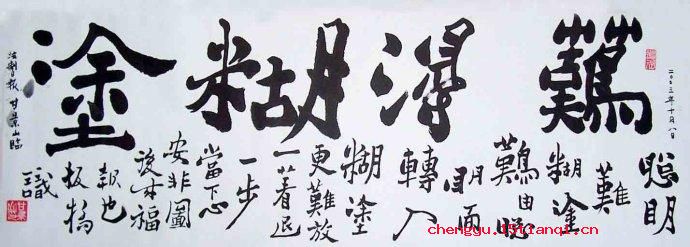 難得糊塗
二〇〇三年十月八日
聰明
難
糊塗
難由聰
明而
轉入
糊塗
更難放
一著退
一步
當下心
安非圖
後來福
報也
板橋
識
法制報 甘景山臨
chengyu.15tianqi.cn